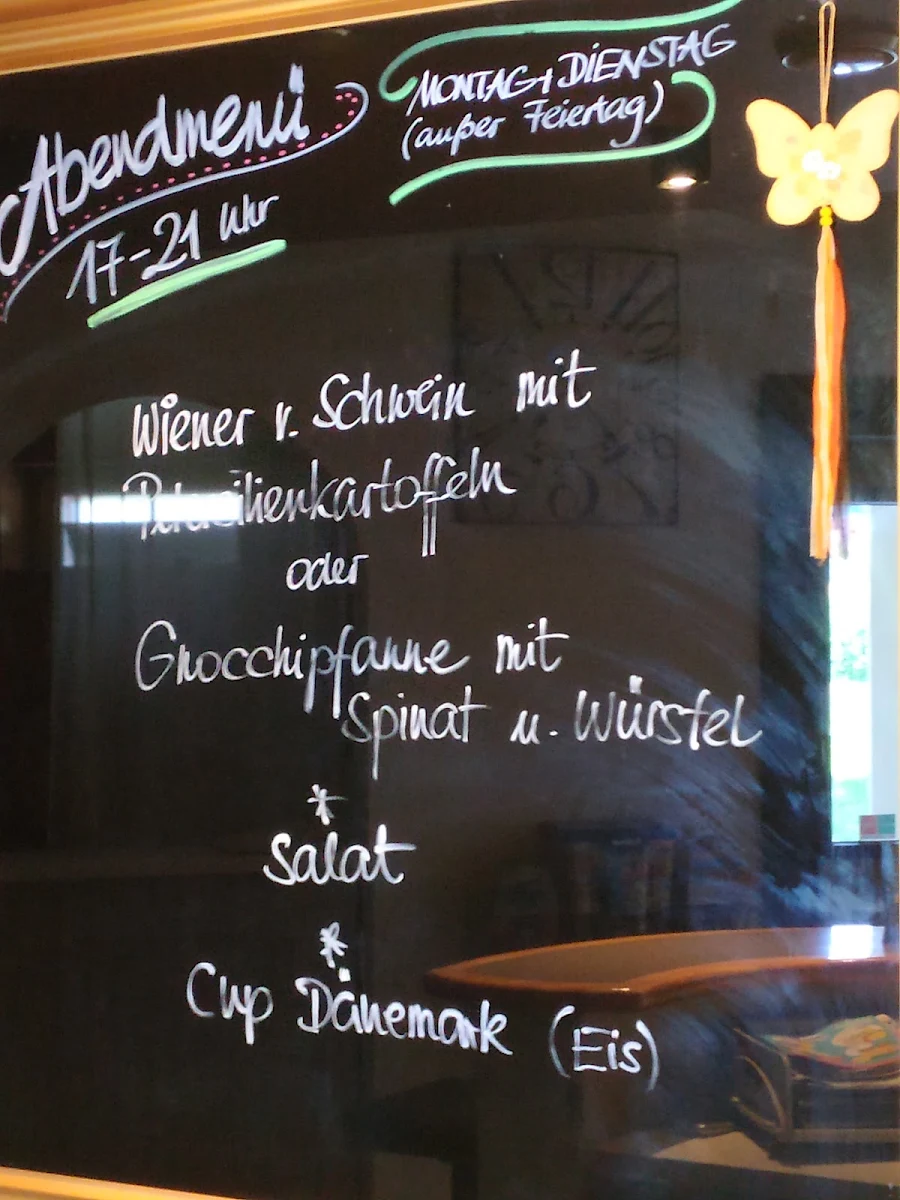 Abendmenü
17-21 Uhr
MONTAG + DIENSTAG
(außer Feiertag)
Wiener v. Schwein mit
Petersilienkartoffeln
oder
Gnocchipfanne mit
Spinat u. Würstel
*
Salat
*
Cup Dänemark (Eis)